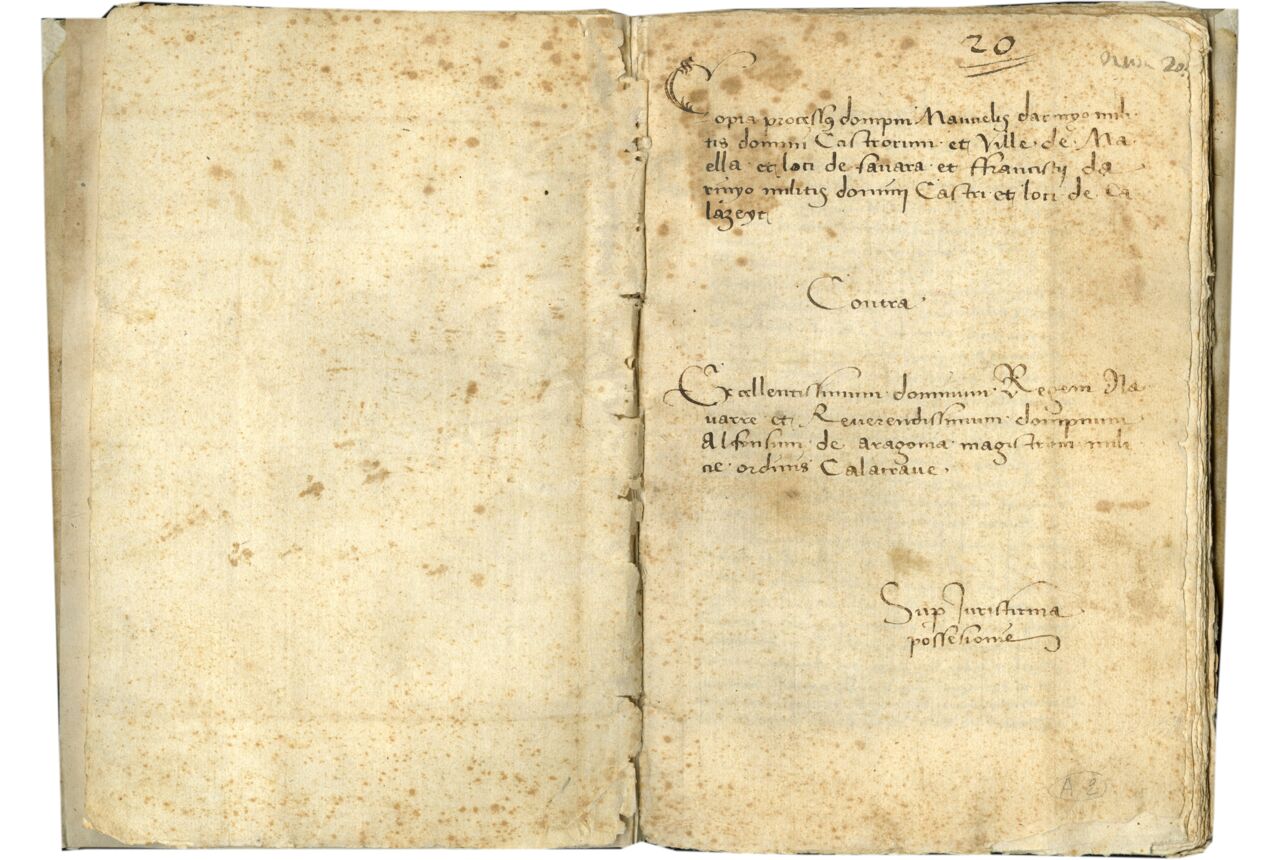 20
20
Copia processus dompni Manuelis darinyo mili
tis domini Castrorum et Ville de Ma
ella et loci de favara et ffrancisci da
rinyo militis domini Castri et loci de Ca
lazeyt
Contra
Excellentissimum dominum Regem Na
varre et Reverendissimum dompnum
Alfonsum de aragonia magistrum mili
cie ordinis Calatrave
Sup Juris firma
possesionis
A 2